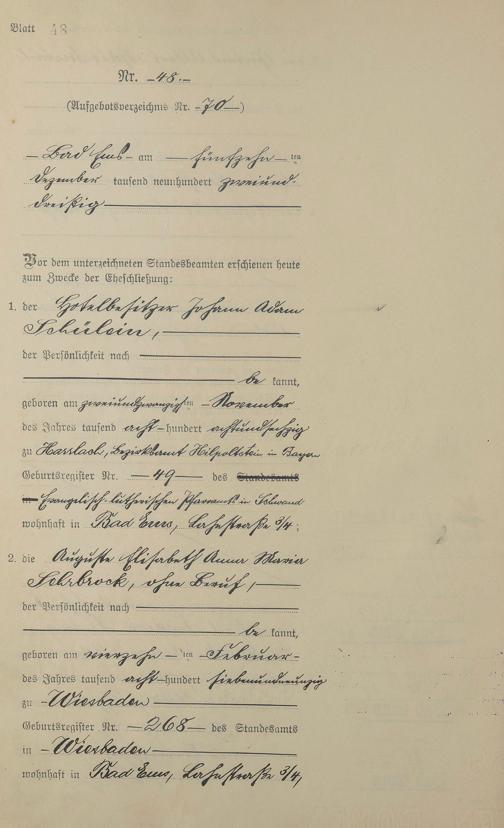 Blatt 48
Nr. 48.
(Aufgebotsverzeichnis Nr. 70)
Bad Ems am fünfzehnten
Dezember tausend neunhundert zweiund-
dreißig
Vor dem unterzeichneten Standesbeamten erschienen heute
zum Zwecke der Eheschließung:
1. der Hotelbesitzer Johann Adam
Schülein,
der Persönlichkeit nach
be kannt,
geboren am zweiundzwanzigsten November
des Jahres tausend acht hundert achtundsechzig
zu Harrlach, Bezirksamt Hilpoltstein in Bayern
Geburtsregister Nr. 49 des Standesamts
in Evangelisch-lutherischen Pfarramts in Schwand
wohnhaft in Bad Ems, Lahnstraße 3/4;
2. die Auguste Elisabeth Anna Maria
Sehrbrock, ohne Beruf,
der Persönlichkeit nach
be kannt,
geboren am vierzehnten Februar
des Jahres tausend acht hundert siebenundneunzig
zu Wiesbaden
Geburtsregister Nr. 268 des Standesamts
in Wiesbaden
wohnhaft in Bad Ems, Lahnstraße 3/4,